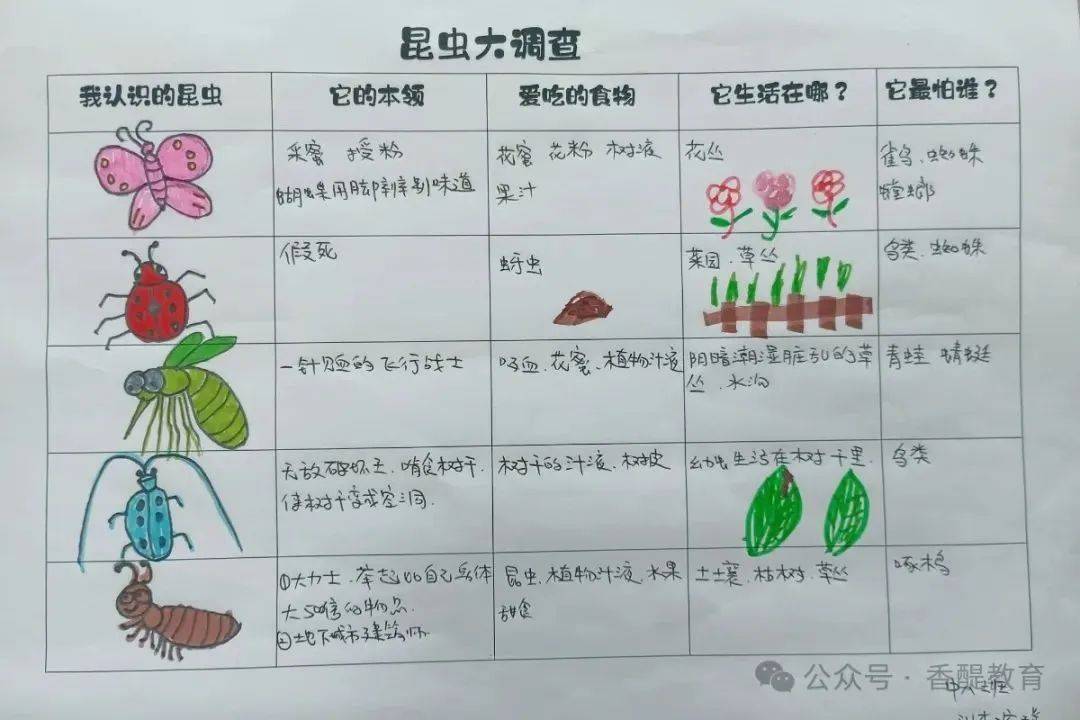 昆虫大调查
我认识的昆虫 它的本领 爱吃的食物 它生活在哪？ 它最怕谁？
采蜜 授粉
蝴蝶用脚辨别味道
花蜜 花粉 树液
果汁
花丛
雀鸟、蜘蛛
螳螂
假死
蚜虫
菜园、草丛
鸟类、蜘蛛
一针见血的飞行战士
吸血、花蜜、植物汁液
阴暗潮湿脏乱的草
丛、水沟
青蛙 蜻蜓
无敌破坏王、啃食树干
使树干变成空洞.
树干的汁液、树皮
幼虫生活在树干里.
鸟类
①大力士、举起比自己身体
大50倍的物品.
②地下城市建筑师
昆虫、植物汁液、水果
甜食
土壤、枯树、草丛
啄木鸟
公众号·香醍教育